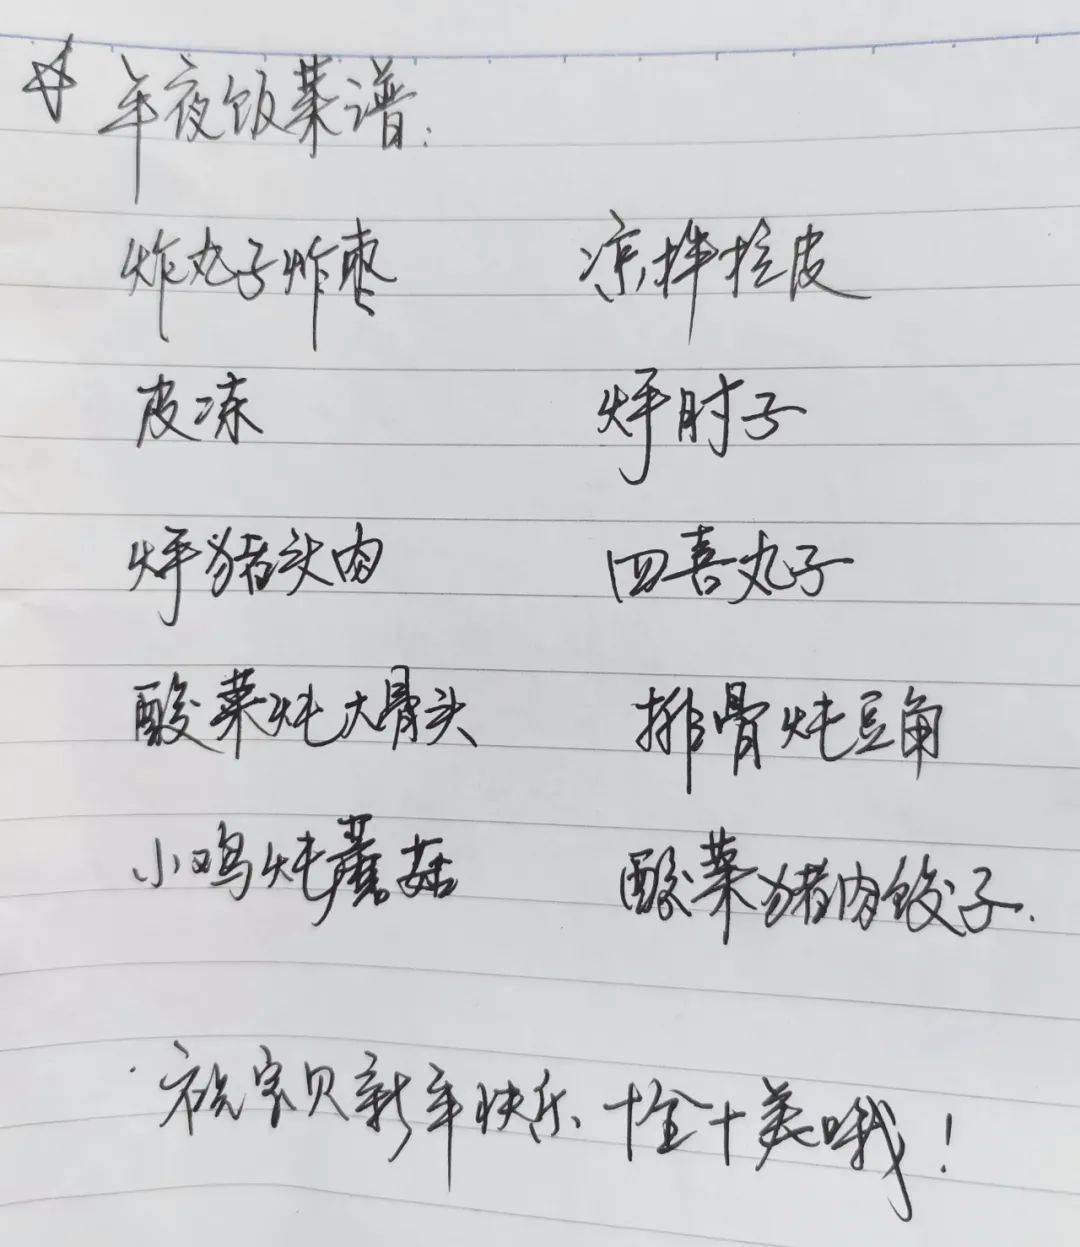 ☆年夜饭菜谱:
炸丸子炸枣 凉拌拉皮
皮冻 烀肘子
烀猪头肉 四喜丸子
酸菜炖大骨头 排骨炖豆角
小鸡炖蘑菇 酸菜猪肉饺子.
·祝宝贝新年快乐 十全十美哦!